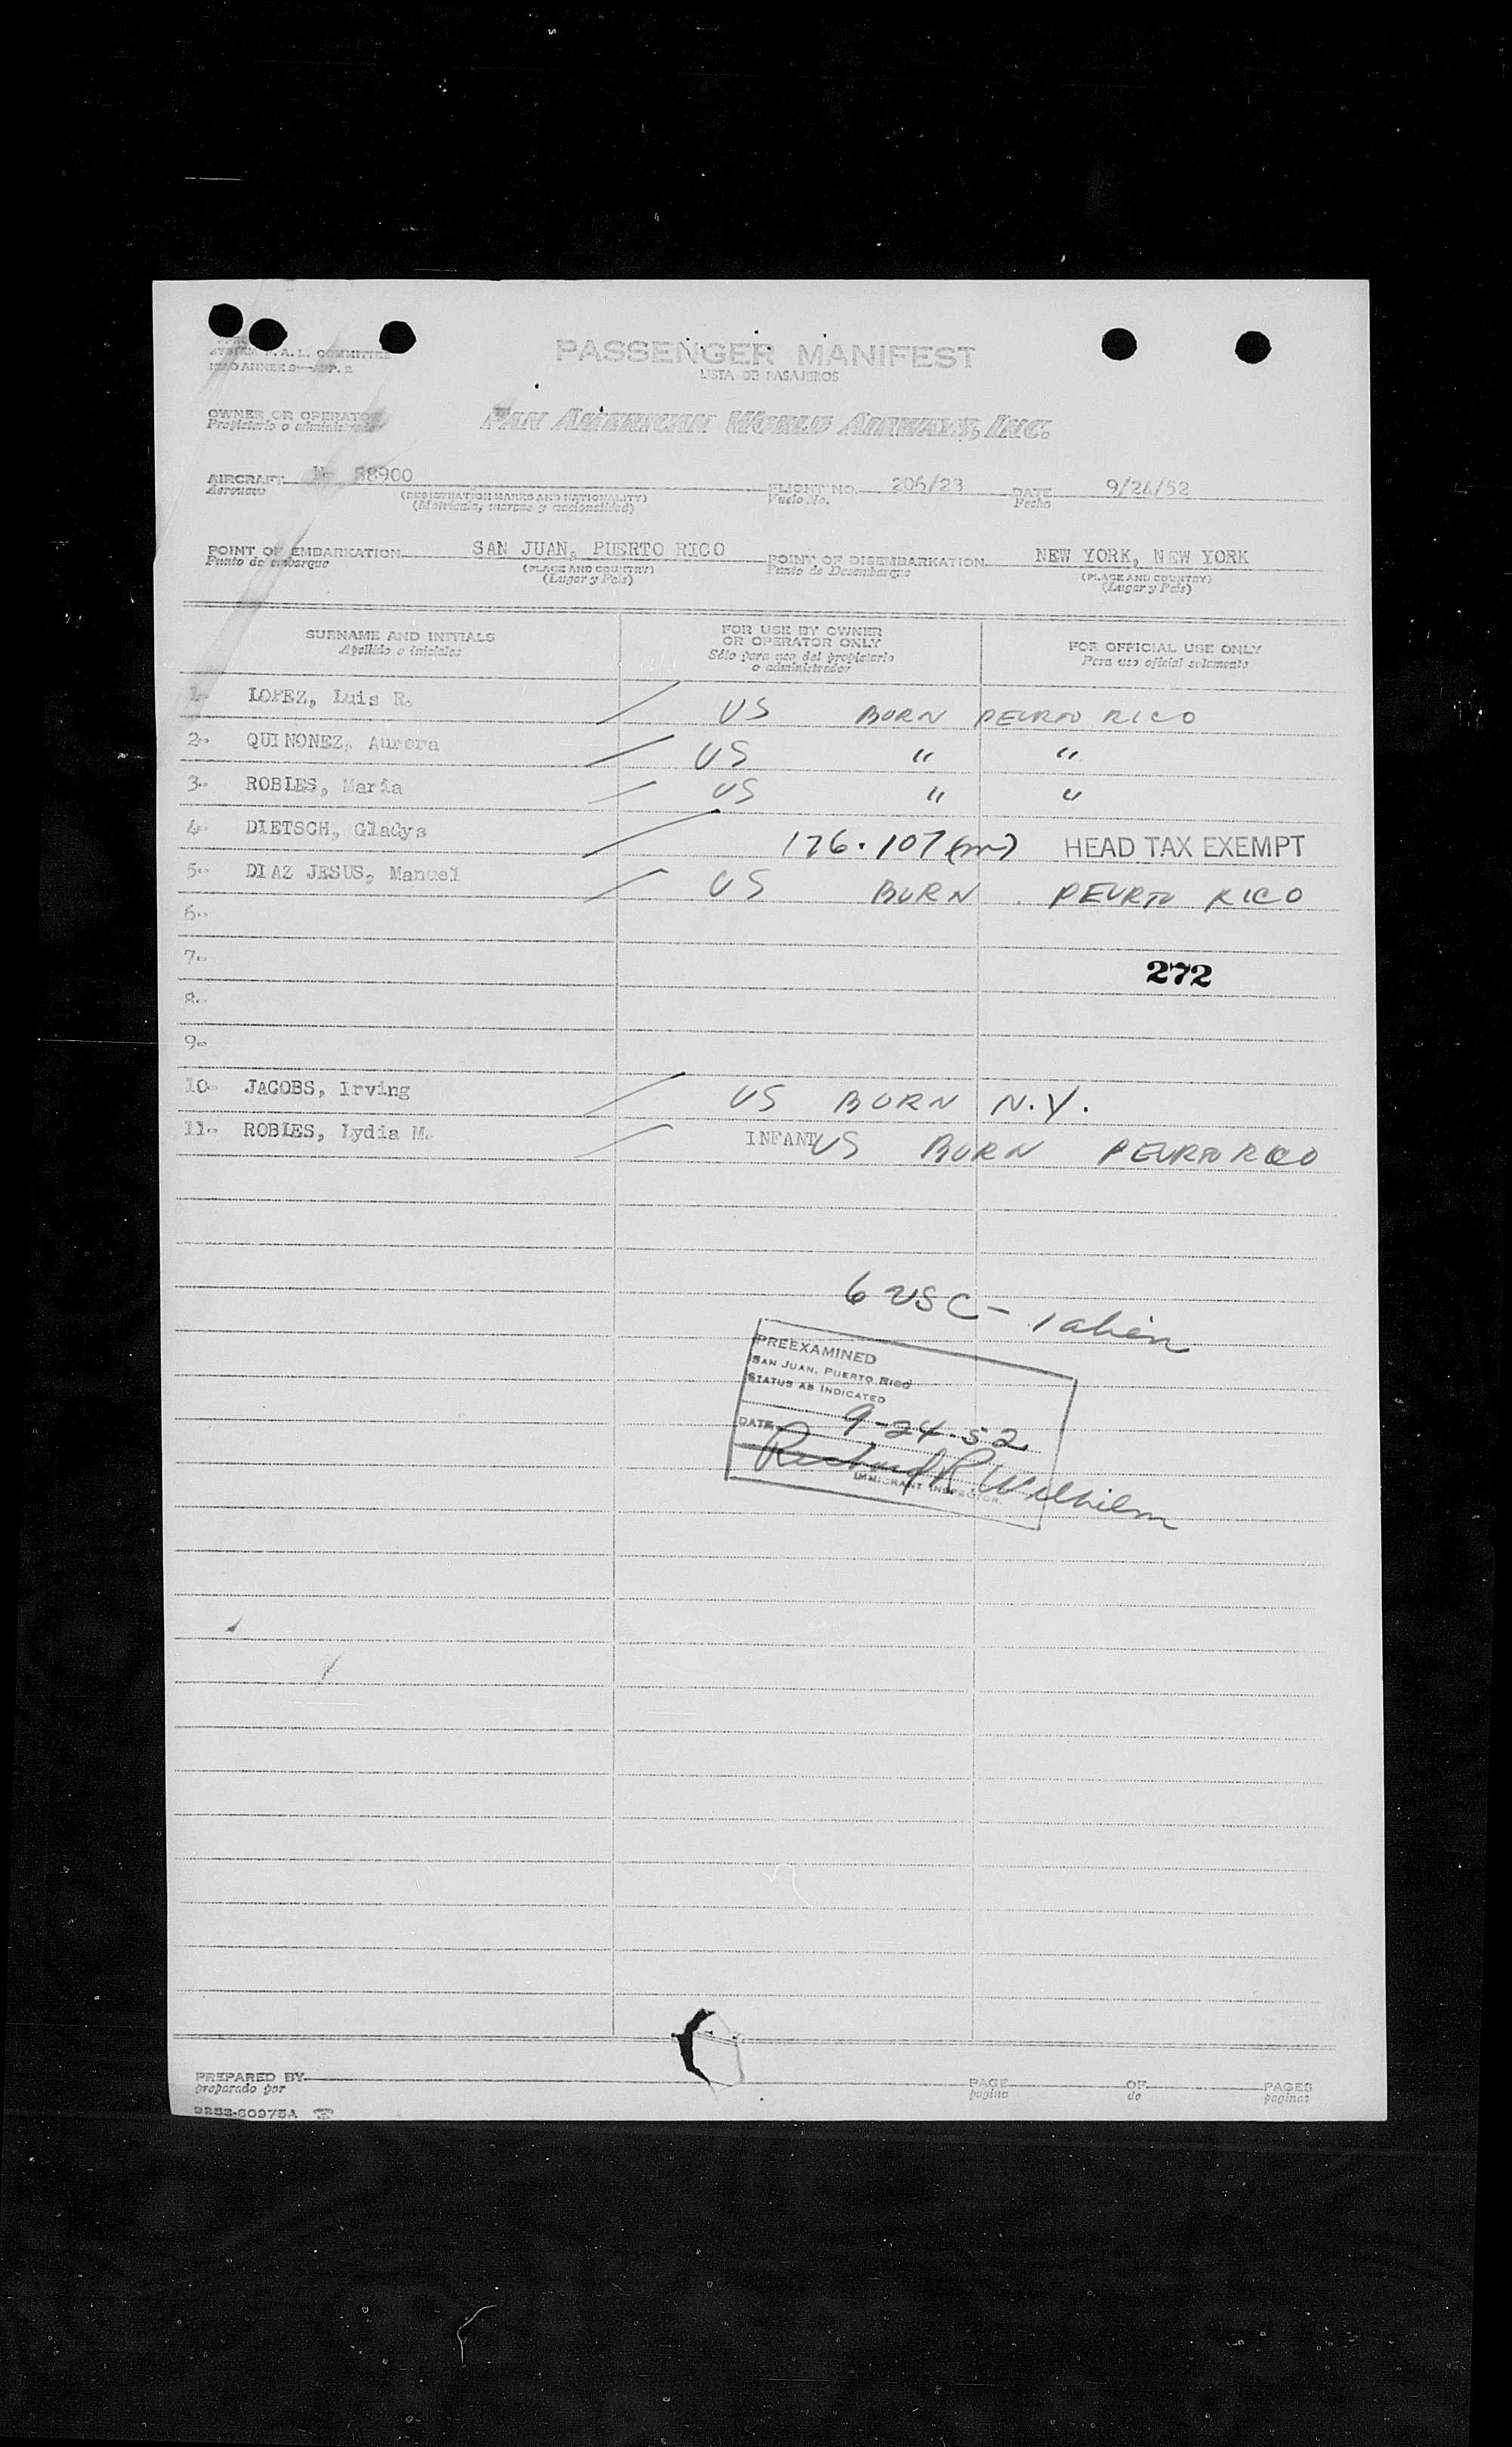 SYSTEM F.A.L. COMMITTEE
ICAO ANNEX 9—APP. 2
PASSENGER MANIFEST
LISTA DE PASAJEROS
OWNER OR OPERATOR
Propietario o administrador
PAN AMERICAN WORLD AIRWAYS, INC.
AIRCRAFT N- 88900 FLIGHT NO. 206/23 DATE 9/24/52
Aeronave (REGISTRATION MARKS AND NATIONALITY) Vuelo No. Fecha
(Matrícula, marcas y nacionalidad)
POINT OF EMBARKATION SAN JUAN, PUERTO RICO POINT OF DISEMBARKATION NEW YORK, NEW YORK
Punto de embarque (PLACE AND COUNTRY) Punto de Desembarque (PLACE AND COUNTRY)
(Lugar y País) (Lugar y País)
SURNAME AND INITIALS FOR USE BY OWNER OR OPERATOR ONLY FOR OFFICIAL USE ONLY
Apellido e iniciales Sólo para uso del propietario o administrador Para uso oficial solamente
1- LOPEZ, Luis R. US BORN PEURTO RICO
2- QUINONEZ, Aurora US " "
3- ROBLES, Maria US " "
4- DIETSCH, Gladys 176.107(m) HEAD TAX EXEMPT
5- DIAZ JESUS, Manuel US BORN PEURTO RICO
6-
7- 272
8-
9-
10- JACOBS, Irving US BORN N.Y.
11- ROBLES, Lydia M. INFANT US BORN PEURTO RICO
6 USC - 1 alien
PREEXAMINED
SAN JUAN, PUERTO RICO
STATUS AS INDICATED
DATE 9-24-52
Richard R. Wilhilm
IMMIGRANT INSPECTOR
PREPARED BY PAGE OF PAGES
preparado por pagina de paginas
9253-60975A